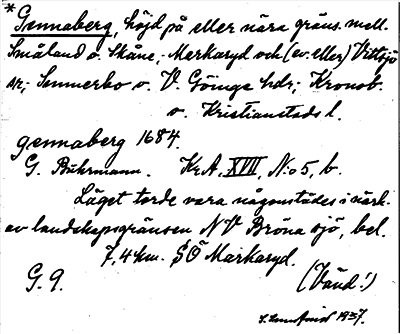 * Gennaberg, höjd på eller nära gräns. mell.
Småland o. Skåne; Markaryd och (ev. eller) Vittsjö
sr; Sunnerbo o. V. Göinge hdr; Kronob.
o. Kristianstads l.
gennaberg 1684.
G. Buhrmann. Kr.A, XVII, N:o 5, b.
Läget torde vara någonstädes i närh.
av landskapsgränsen NV Bröna sjö, bel.
7,4 km. SÖ Markaryd.
G. 9. (Vänd!)
1937.